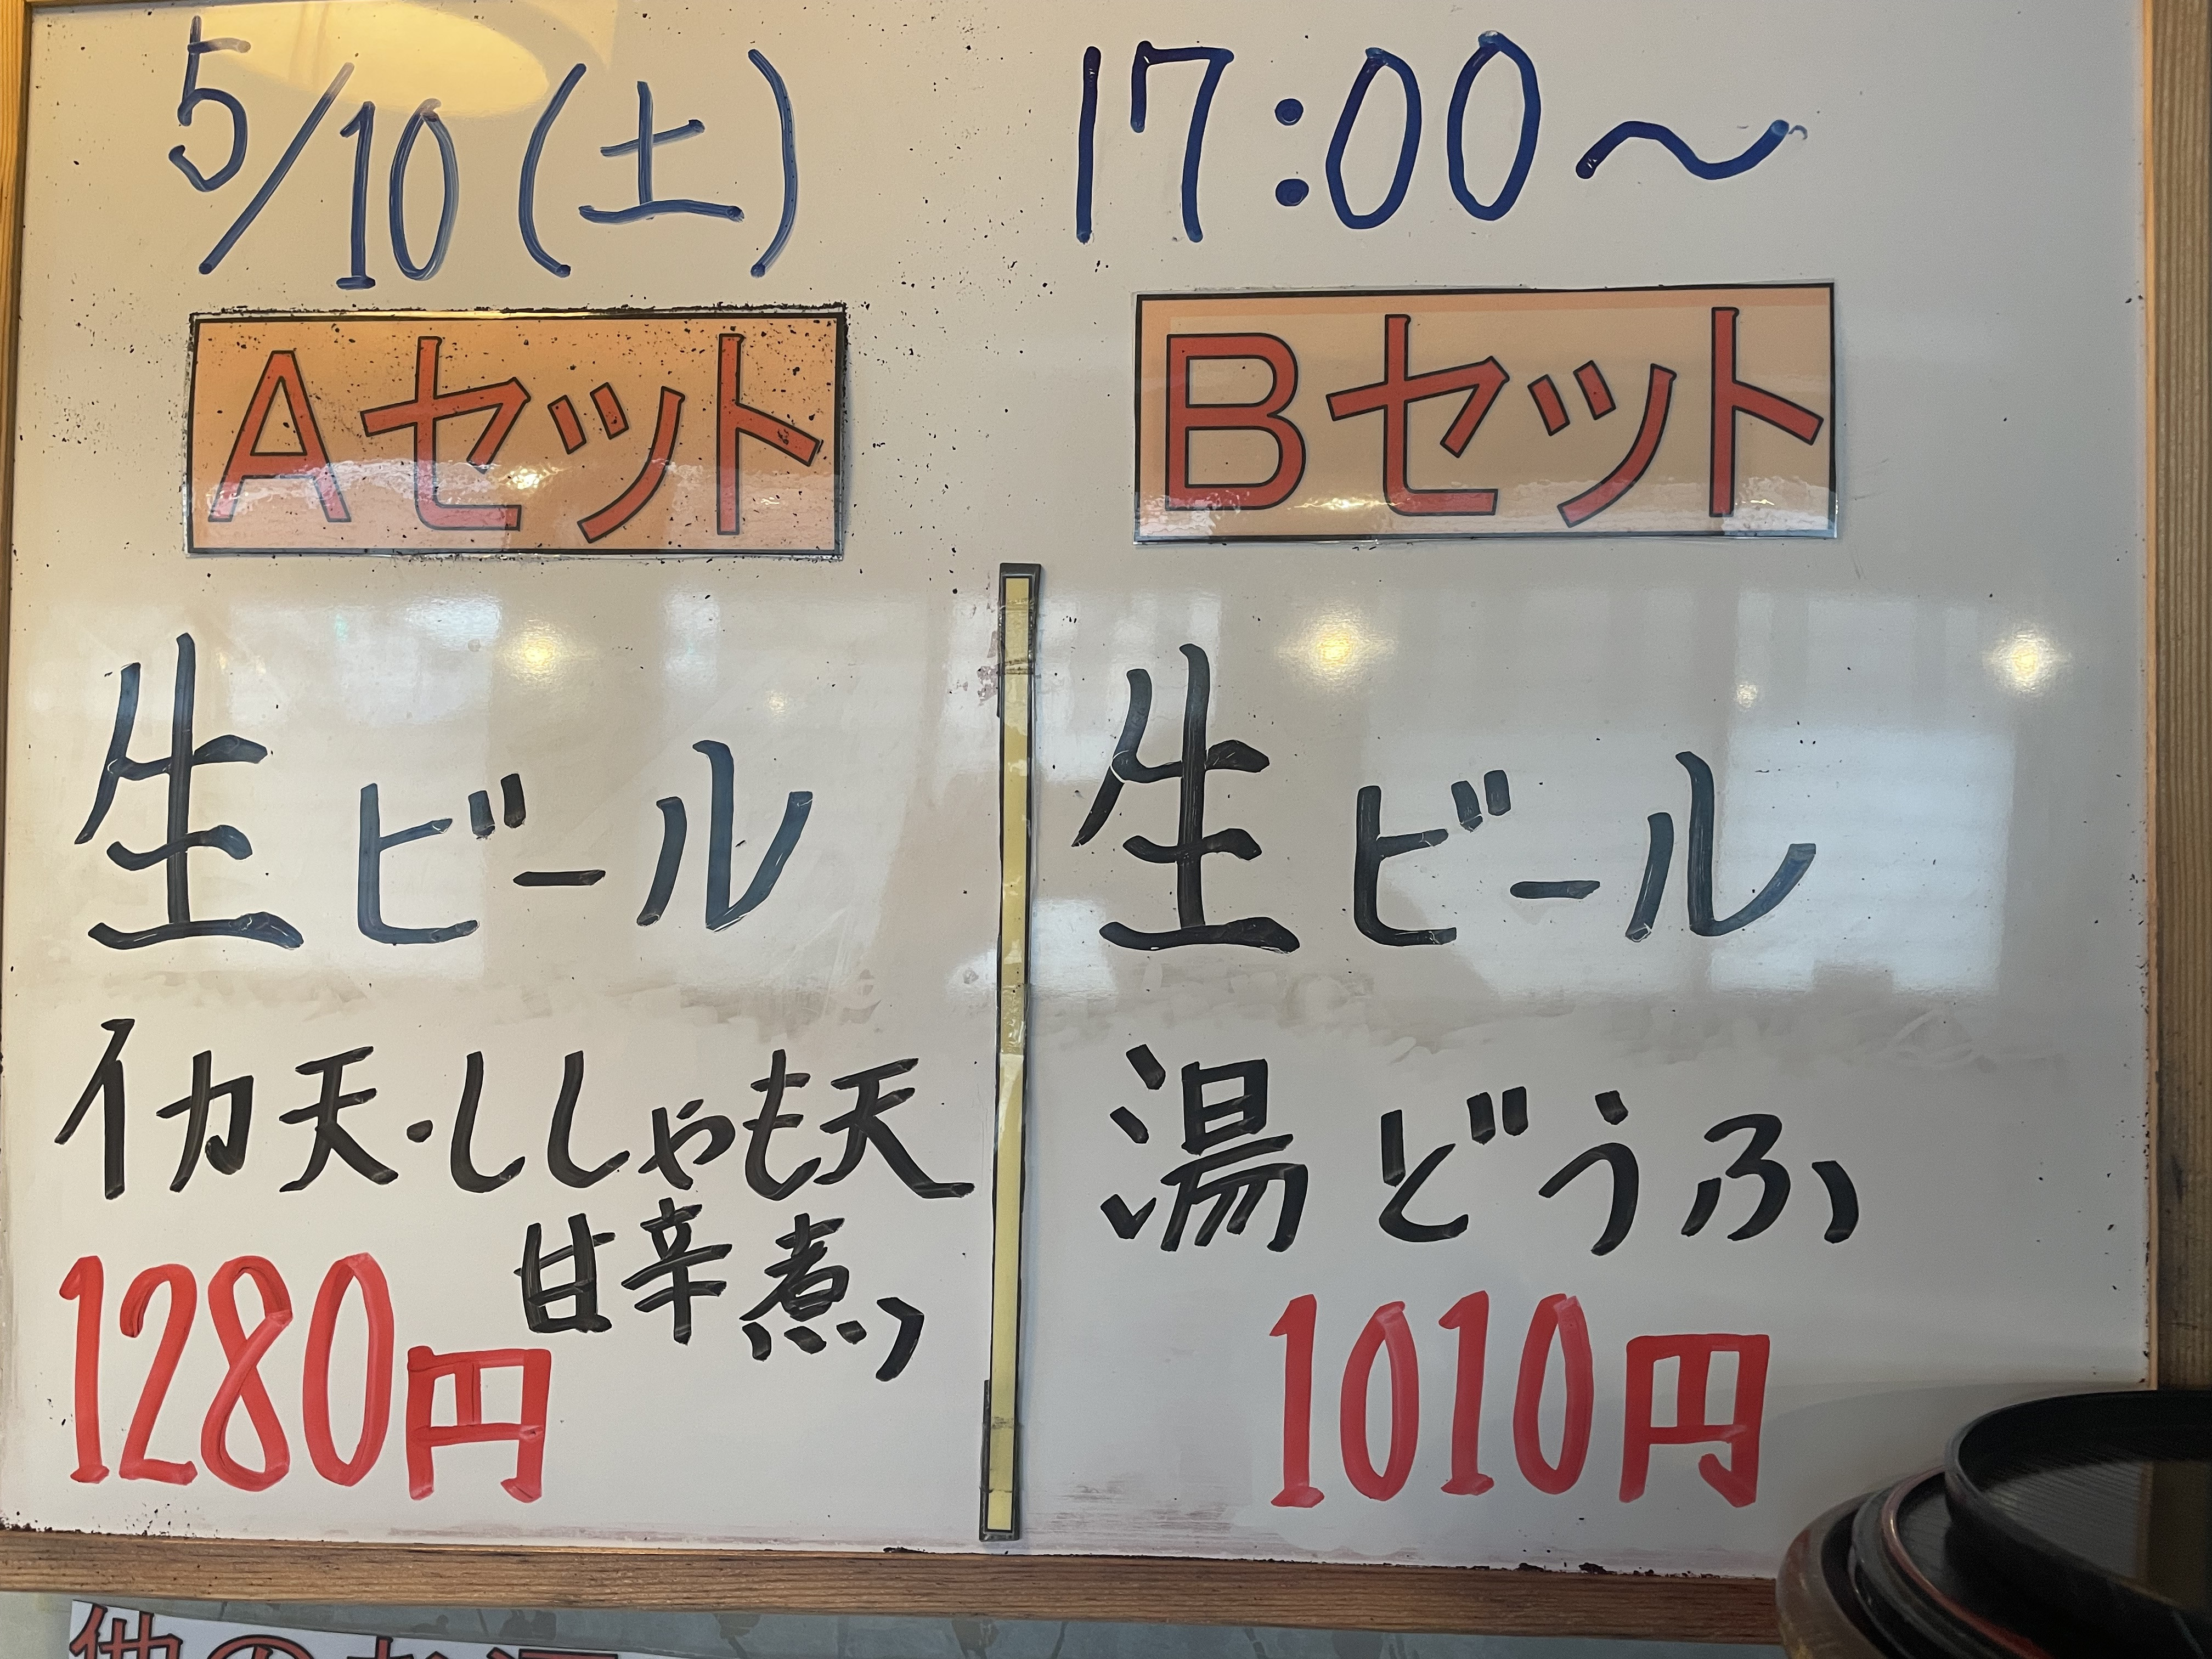 5/10(土) 17:00〜
Aセット
生ビール
イカ天・ししゃも天
甘辛煮
1280円
Bセット
生ビール
湯どうふ
1010円
他のお酒